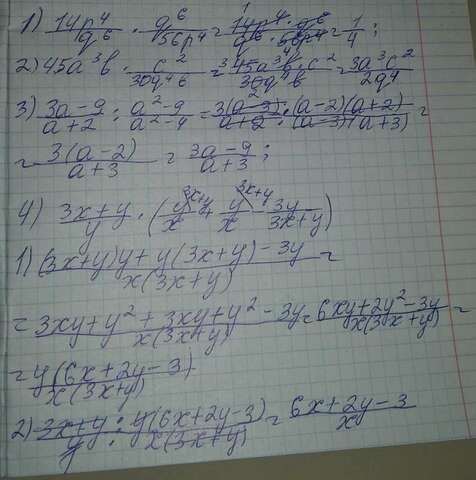 1) 14p^4/q^6 · q^6/56p^4 = 14p^4 · q^6/q^6 · 56p^4 = 1/4;
2) 45a^3b · c^2/30q^4b = 45a^3b · c^2/30q^4b = 3a^3c^2/2q^4
3) 3a-9/a+2 : a^2-9/a^2-4 = 3(a-3) · (a-2)(a+2)/a+2 · (a-3)(a+3) =
= 3(a-2)/a+3 = 3a-9/a+3;
4) 3x+y/y · (y^{3x+y}/x + y^{3x+y}/x - 3y/3x+y)
1) (3x+y)y + y(3x+y) - 3y/x(3x+y) =
= 3xy+y^2+3xy+y^2-3y/x(3x+y) = 6xy+2y^2-3y/x(3x+y) =
= y(6x+2y-3)/x(3x+y)
2) 3x+y/y · y(6x+2y-3)/x(3x+y) = 6x+2y-3/x